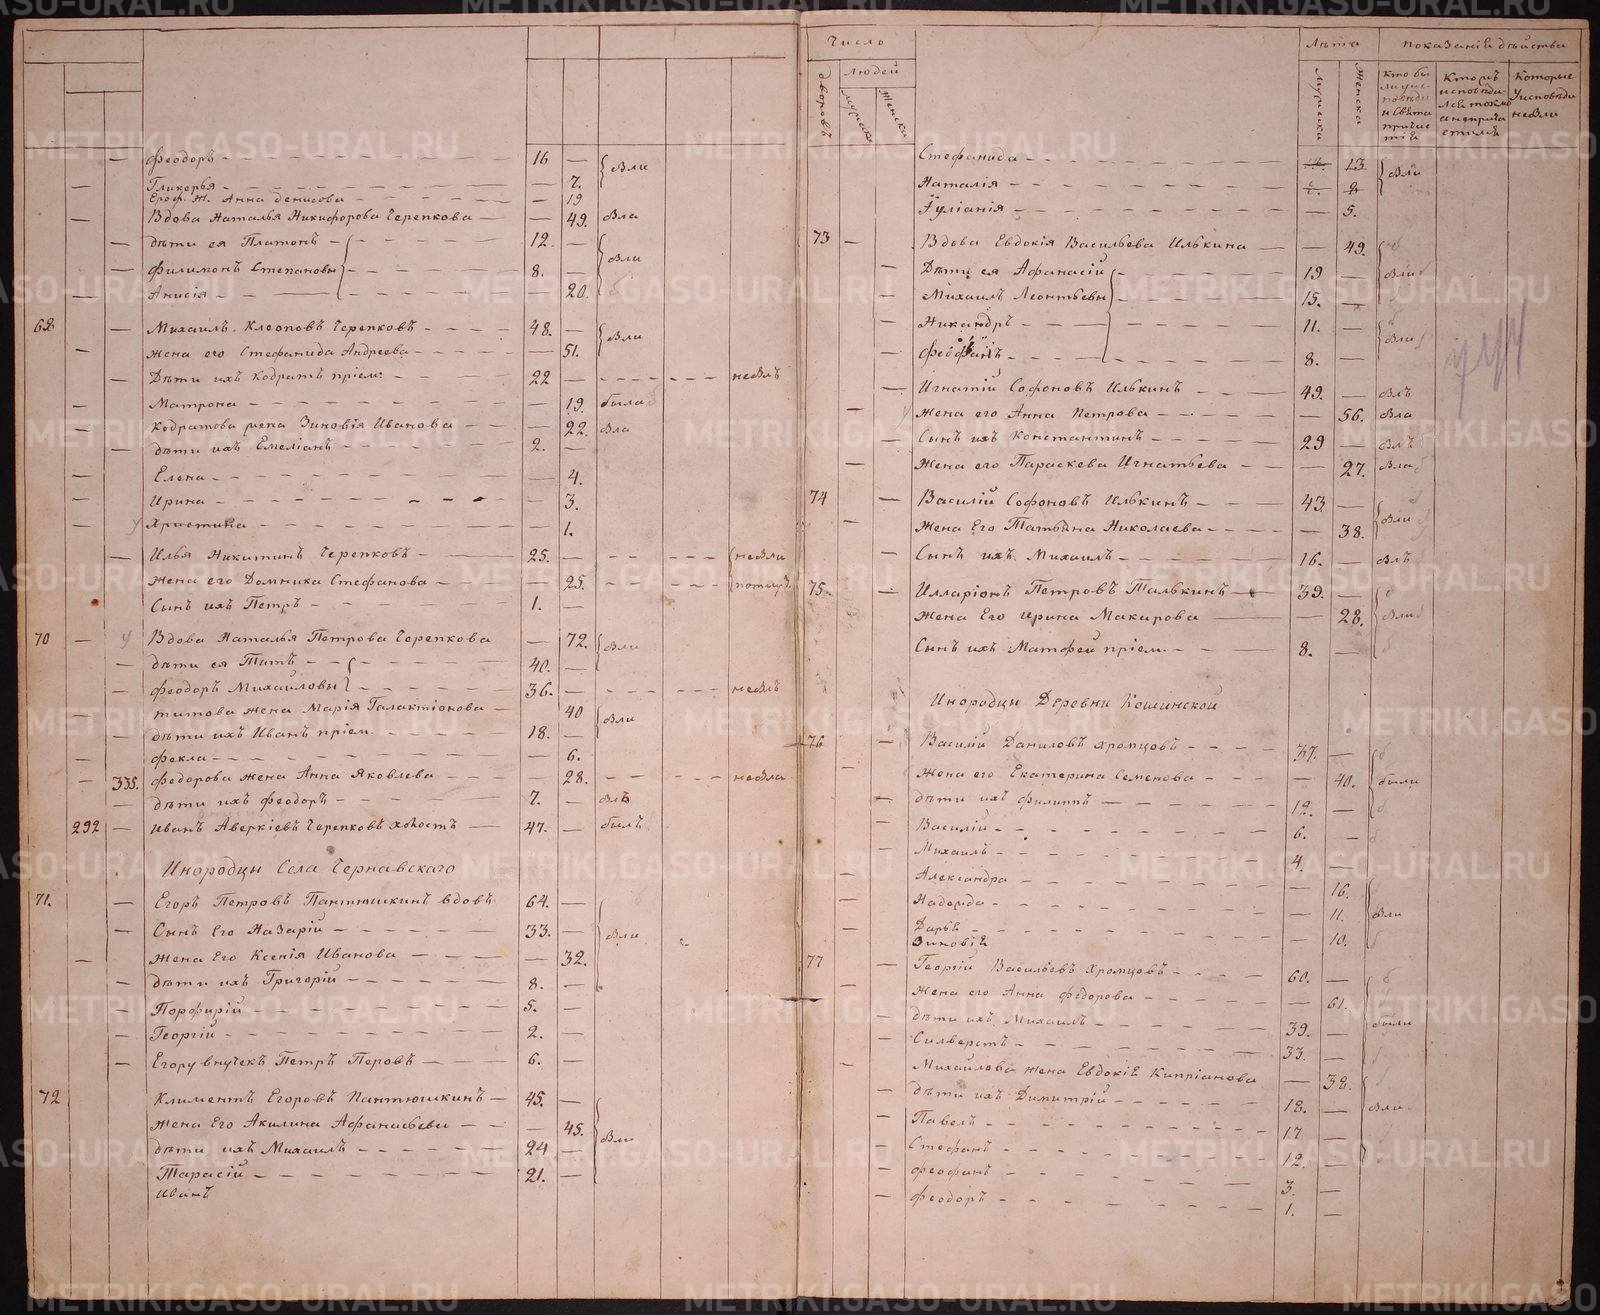 Ѳеодоръ — 16 —
Гликерья — — 7. } Бли
Ероф. ж. Анна Денисова — 19
Вдова Наталья Никифорова Черепкова — — 49. Бла
дѣти ея Платонъ — 12. —
Филимонъ Степановы — 8. — Бли
Анисія — — 20.
Михаилъ Клеоповъ Черепковъ — 48. —
жена его Стефанида Андреева — — 51. Бли
Дѣти ихъ Кодратъ пріем: — 22 — небылъ
Матрона — — 19. была
Кодратова жена Зиновія Иванова — — 22. Бла
дѣти ихъ Емеліанъ — 2. —
Елена — — 4.
Ирина — — 3.
Христина — — 1.
Илья Никитинъ Черепковъ — 25. — небыли
жена его Домника Стефанова — — 25.
Сынъ ихъ Петръ — 1. —
70 — Вдова Наталья Петрова Черепкова — 72. Бли
дѣти ея Титъ — 40. —
Ѳеодоръ Михайловы — 36. — небылъ
титова жена Марія Галактіонова — 40
дѣти ихъ Иванъ пріем. — 18. — Бли
Ѳекла — — 6.
335. Ѳедорова жена Анна Яковлева — — 28. небыла
дѣти ихъ Ѳеодоръ — 7. — Блъ
292 — Иванъ Аверкіевъ Черепковъ холостъ — 47. — былъ
Инородцы Села Чернавскаго
71. Егоръ Петровъ Пантюшкинъ вдовъ 64. —
Сынъ Его Назарій — 33. — Бли
жена Его Ксенія Иванова — — 32.
дѣти ихъ Григорій — 8. —
Порфирій — 5. —
Георгій — 2. —
Егору внучекъ Петръ — 6. —
72 Климентъ Егоровъ Пантюшкинъ — 45. —
жена Его Акилина Афанасьева — — 45. Бли
дѣти ихъ Михаилъ — 24 —
Тарасій — 21. —
Иванъ
Число
Лѣта
показаніе дѣйства
дворовъ
людей
мужска
женска
мужска
женска
Которые
у исповѣди
небыли
Стефанида — 13
Наталія — Бли
Іуліанія — — 5.
73 — Вдова Евдокія Васильева Илькина — — 49.
Дѣти ея Афанасій — 19 — Бли
Михаилъ Леонтьевы — 15. —
Никандръ — 11. — Бли
8. —
Игнатій Софоновъ Илькинъ — 49. — Блъ
жена его Анна Петрова — — 56. Бла
Сынъ ихъ Константинъ — 29 — Блъ
жена его Параскева Игнатьева — — 27. Бла
74 — Василій Софоновъ Илькинъ — 43 —
жена Его Татьяна Николаева — — 38. Бли
Сынъ ихъ Михаилъ — 16. — Блъ
75 Илларіонъ Петровъ Талькинъ — 39. —
жена Его Ирина Макарова — — 28. Бли
Сынъ ихъ Матфей пріем. — 8. —
Инородцы Деревни Кошинской
76 — Василій Даниловъ Хромцовъ — 37. —
жена его Екатерина Семенова — — 40. были
дѣти ихъ Филиппъ — 12. —
Василій — 6. —
Михаилъ — 4. —
Александра — — 16.
Надежда — — 11. Бли
Дарья — — 10.
Зиновія
77 — Георгій Васильевъ Хромцовъ — 60. —
жена его Анна Федорова — — 61.
дѣти ихъ Михаилъ — 39. — были
Силверстъ — 33. —
Михайлова жена Евдокія Кипріанова — 38.
дѣти ихъ Димитрій — 18. — Бли
Павелъ — 17 —
Стефанъ — 12. —
Ѳеофанъ — 3. —
Ѳеодоръ — 1. —
METRIKI.GASO-URAL.RU